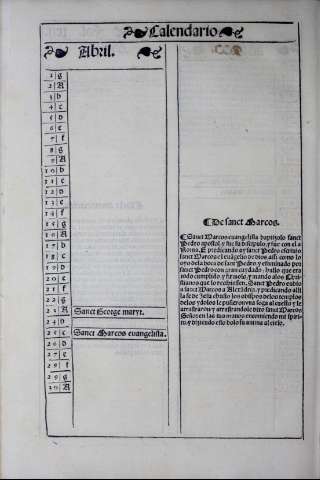 Calendario
Abril.
1 g
2 A
3 b
4 c
5 d
6 e
7 f
8 g
9 A
10 b
11 c
12 d
13 e
14 f
15 g
16 A
17 b
18 c
19 d
20 e
21 f
22 g
23 A Sanct George martyr.
24 b
25 c Sanct Marcos euangelista.
26 d
27 e
28 f
29 g
30 A
De sanct Marcos.
Sanct Marcos euangelista baptizolo sanct
Pedro apostol, y fue su discipulo, y fue con el a
Roma. E predicando ay sanct Pedro escriuio
sanct Marcos el euãgelio de dios assi como lo
oyo dela boca de sant Pedro, y examinado por
sanct Pedro con gran cuydado: hallo que era
todo cumplido, y firmolo, y mando alos Chri
stianos que lo recibiessen. Sanct Pedro embio
a sanct Marcos a Alexãdria, y predicando alli
la fe de Jesu christo los obispos delos templos
delos ydolos le pusieron vna soga al cuello, y le
arrastraron, y arrastrandole dixo sanct Marcos
Señor en las tus manos encomiendo mi spiri-
tu, y diziendo esto bolo su anima al cielo.